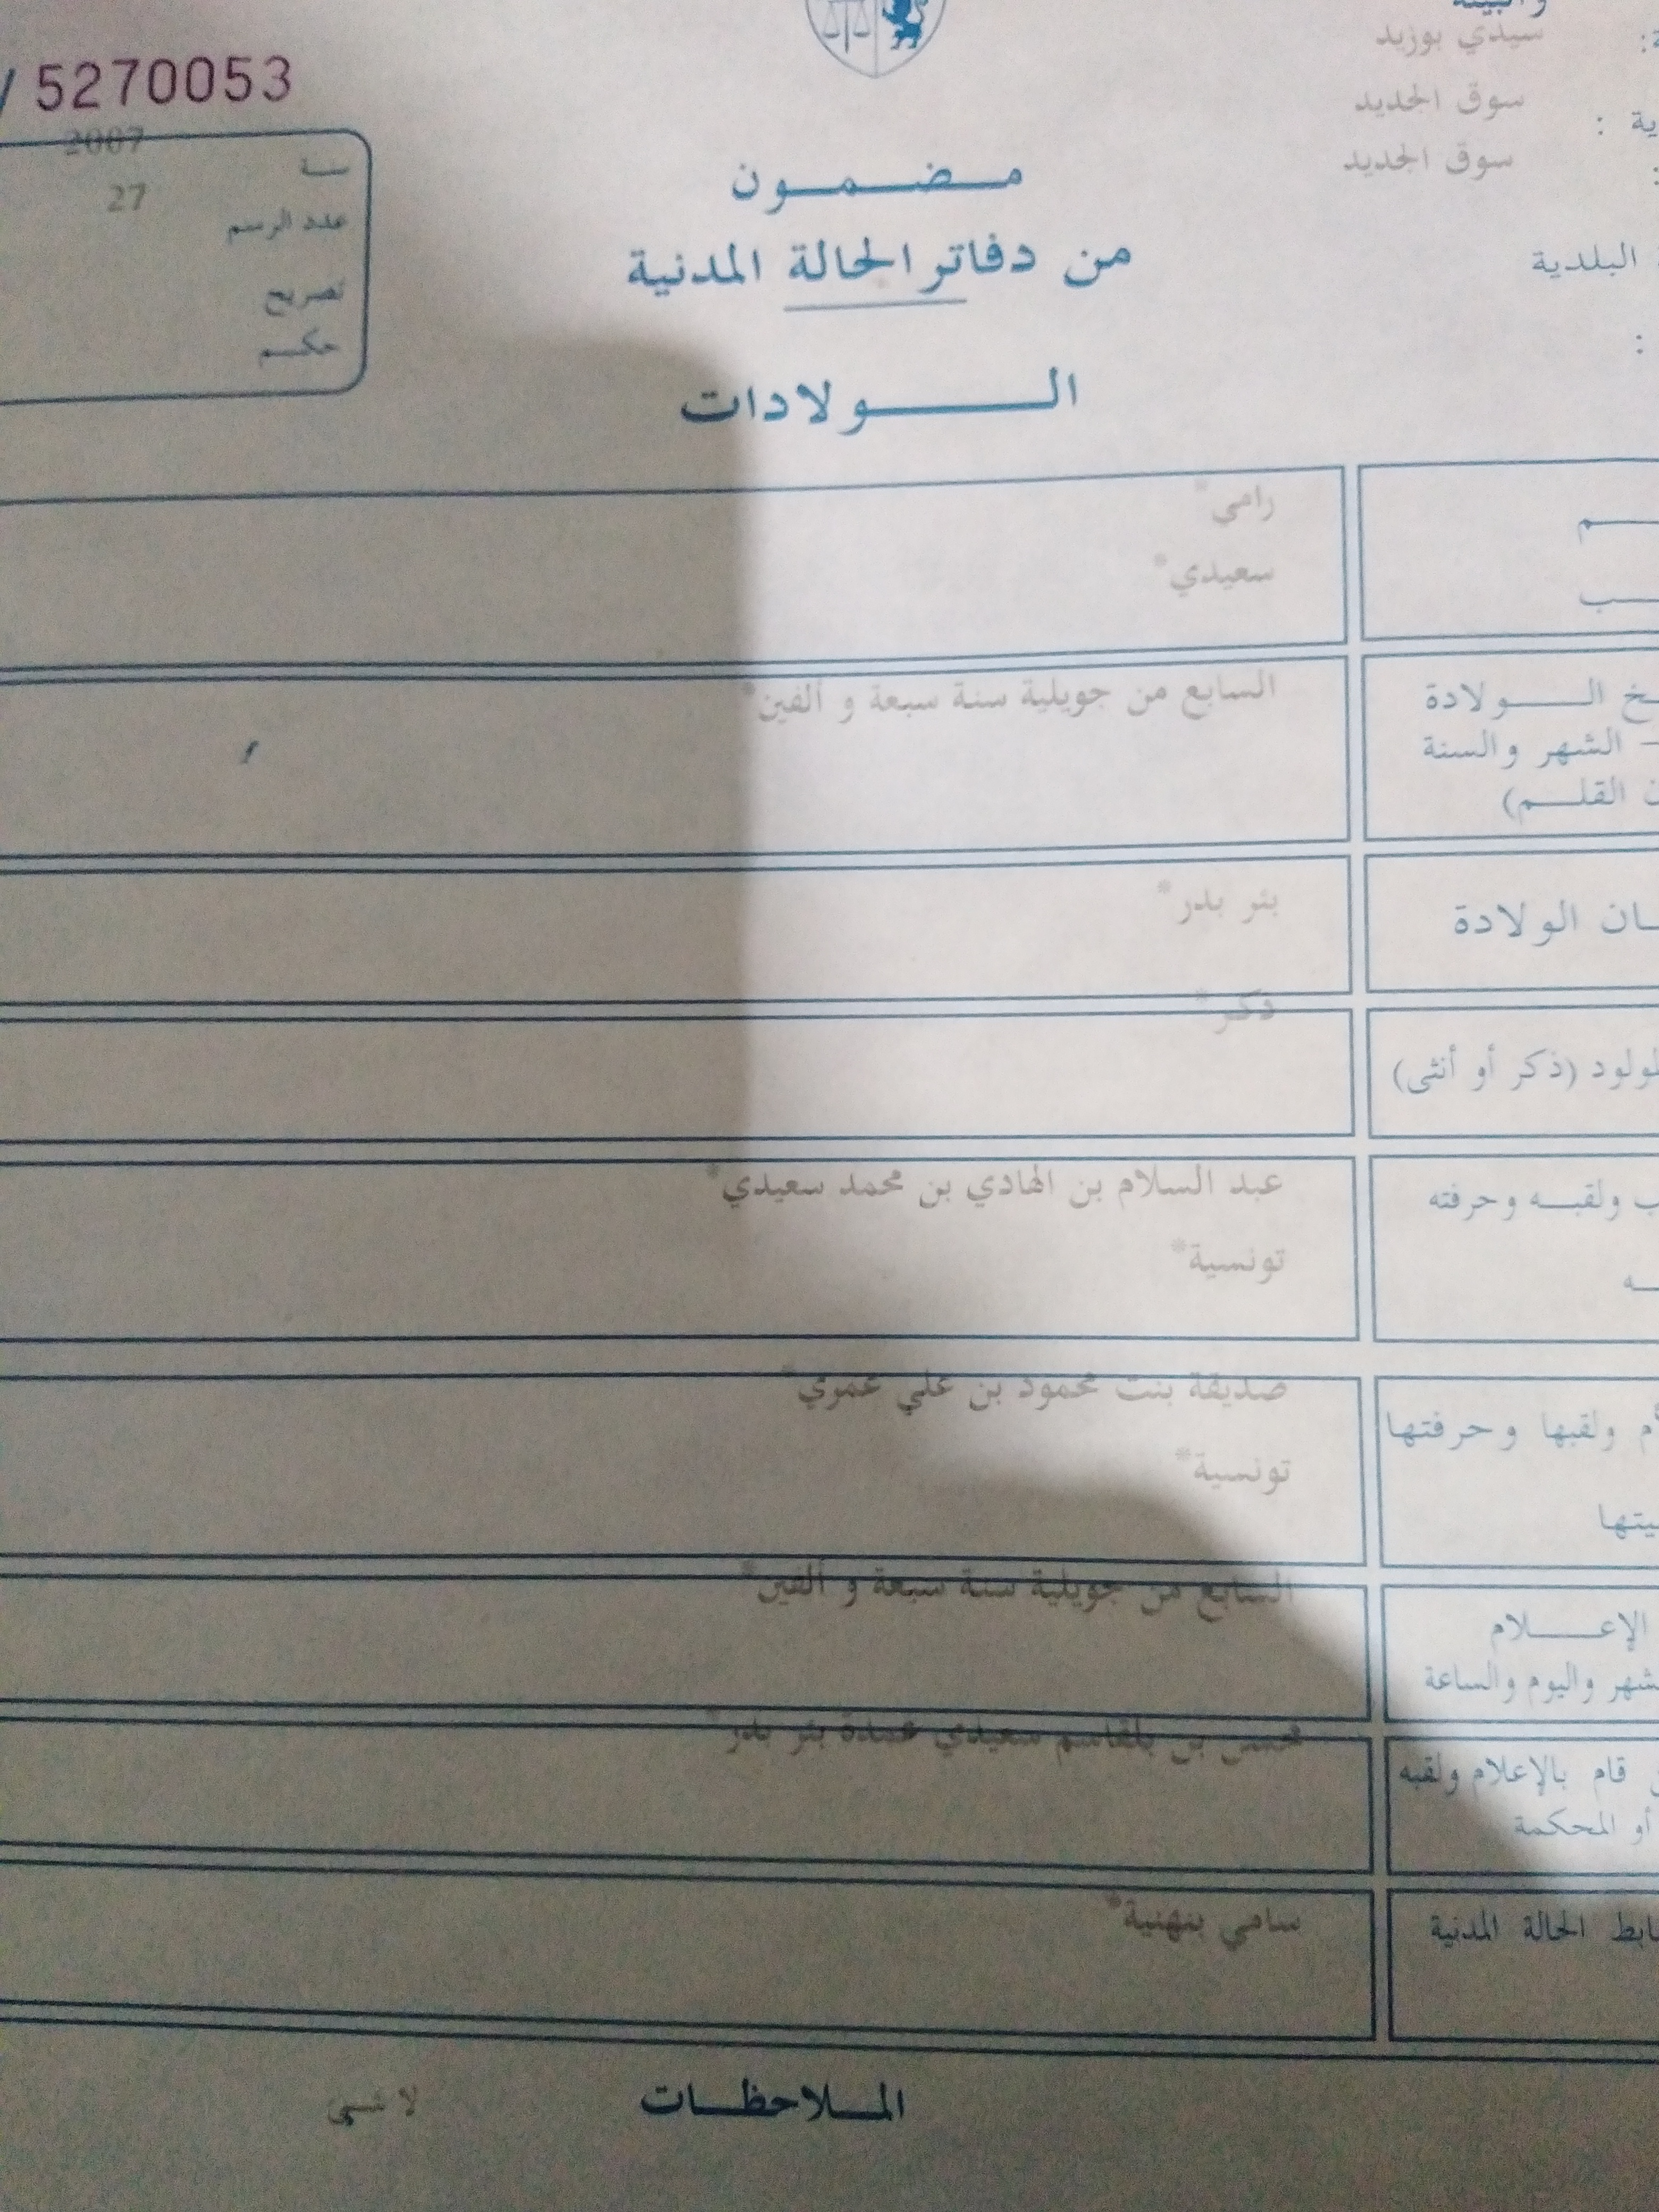 والبيئة
سيدي بوزيد
سوق الجديد
سوق الجديد
البلدية
5270053
2007
سنة
27
عدد الرسم
تصريح
حكم
مضمون
من دفاتر الحالة المدنية
الولادات
رامي*
سعيدي*
الولادة
السابع من جويلية سنة سبعة و ألفين*
– الشهر والسنة
القلم)
الولادة
بئر بدر*
ذكر*
(ذكر أو أنثى)
عبد السلام بن الهادي بن محمد سعيدي*
ولقبه وحرفته
تونسية*
صديقة بنت محمود بن علي عمري*
ولقبها وحرفتها
تونسية*
السابع من جويلية سنة سبعة و ألفين*
الإعلام
واليوم والساعة
محسن بن بلقاسم سعيدي عمدة بئر بدر*
قام بالإعلام ولقبه
أو المحكمة
سامي بنهنية*
الحالة المدنية
الملاحظات
لا شيء